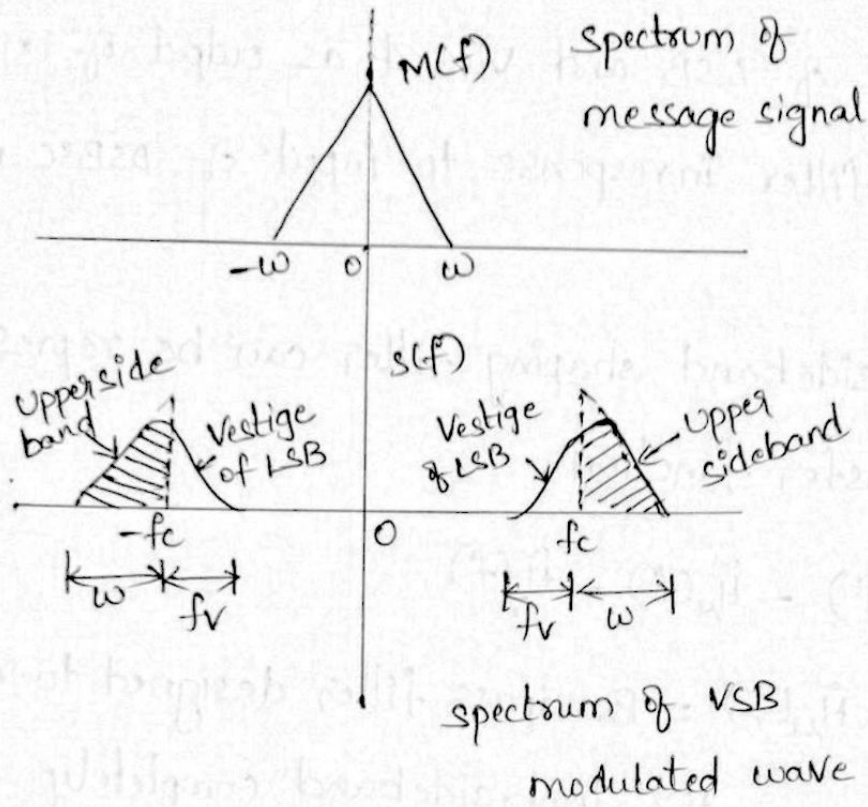 M(f)
spectrum of
message signal
-w 0 w
s(f)
upperside
band
Vestige
of LSB
Vestige
of LSB
upper
sideband
-fc 0 fc
w fv fv w
spectrum of VSB
modulated wave